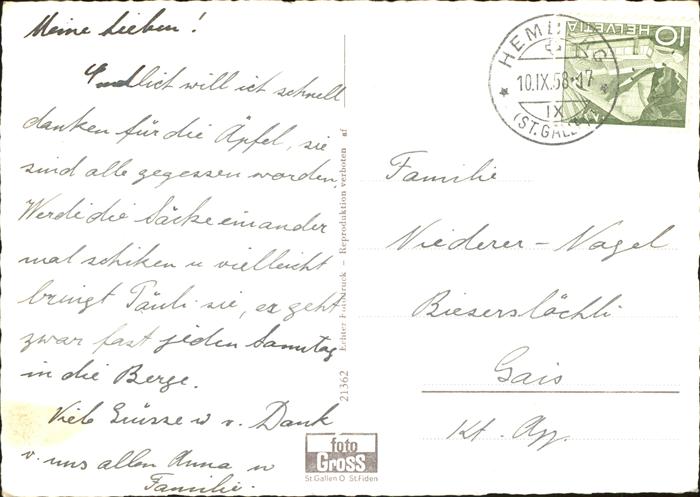 Meine Lieben!
Endlich will ich schnell
danken für die Äpfel, sie
sind alle gegessen worden.
Werde die Säcke ein ander
mal schiken u vielleicht
bringt Päuli sie, er geht
zwar fast jeden Samstag
in die Berge.
Viele Grüsse u v. Dank
v. uns allen Anna u
Familie.
21362 Echter Fotodruck – Reproduktion verboten af
foto
GROSS
St. Gallen O St. Fiden
HELVETIA
10
HEMBERG
10.IX.58-17
IX
(ST. GALLEN)
Familie
Niederer-Nagel
Gais
Kt. App.